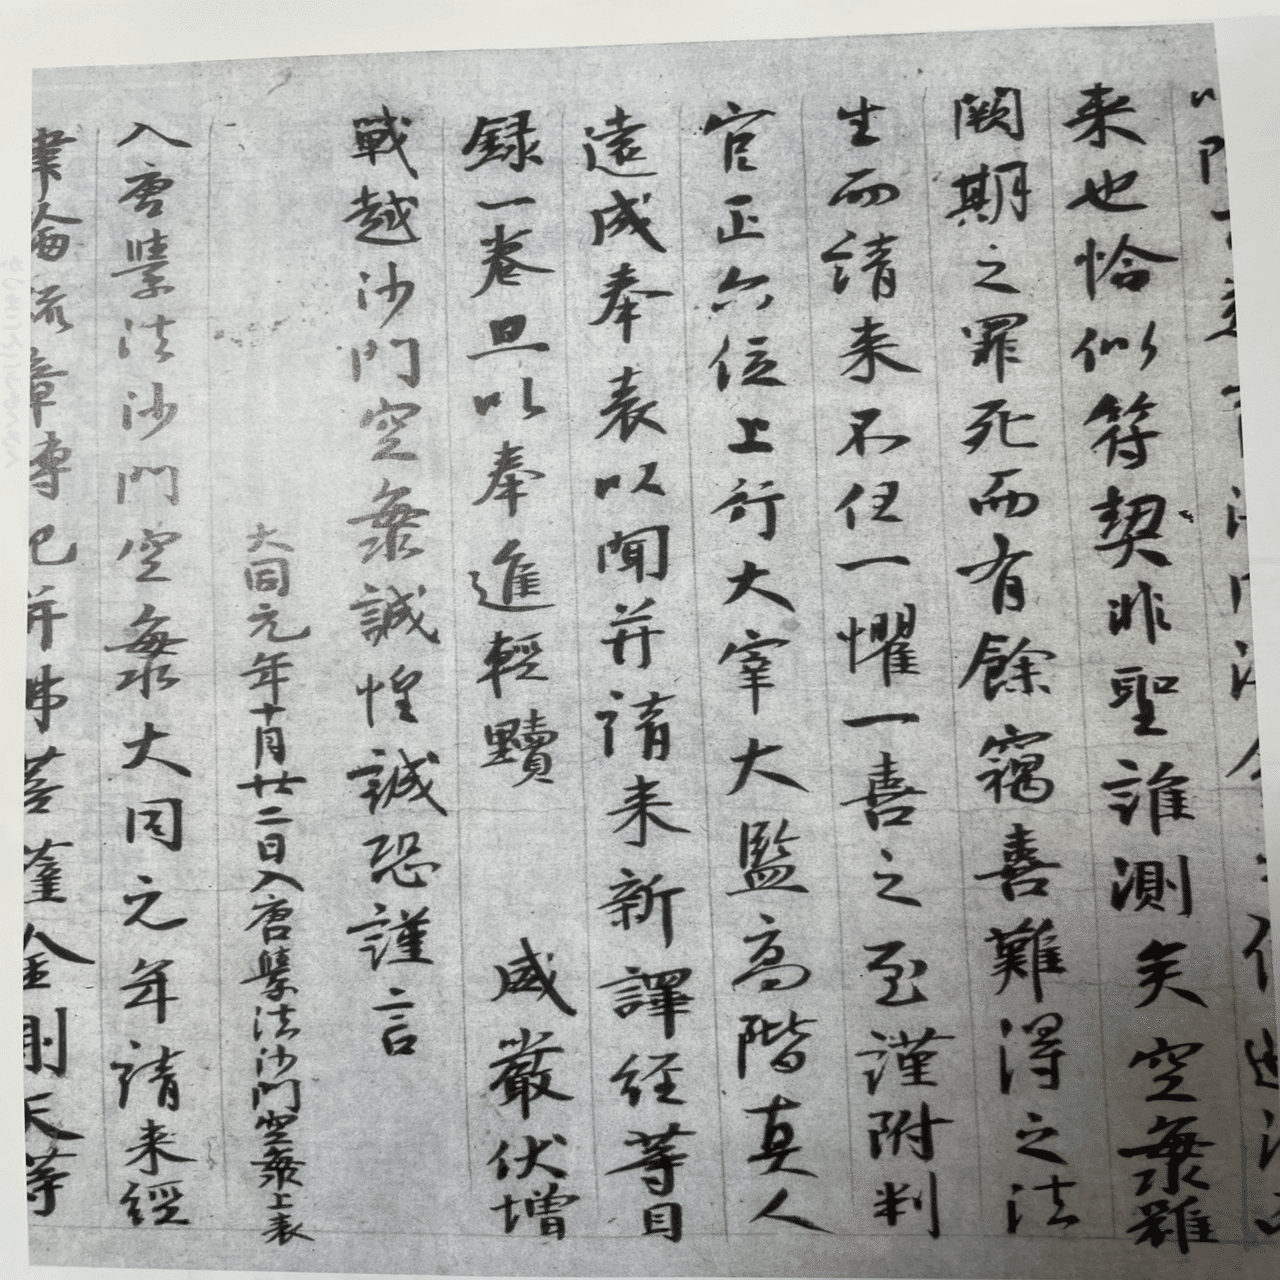 来也恰似符契非聖誰測矣空海雖
闕期之罪死而有餘竊喜難得之法
生而請来不任一懼一喜之至謹附判
官正六位上行大宰大監高階真人
遠成奉表以聞并請来新譯経等目
録一卷且以奉進輕黷 威嚴伏增
戰越沙門空海誠惶誠恐謹言
大同元年十月廿二日入唐學法沙門空海上表
入唐學法沙門空海大同元年請来經
律論疏章傳記并佛菩薩金剛天等